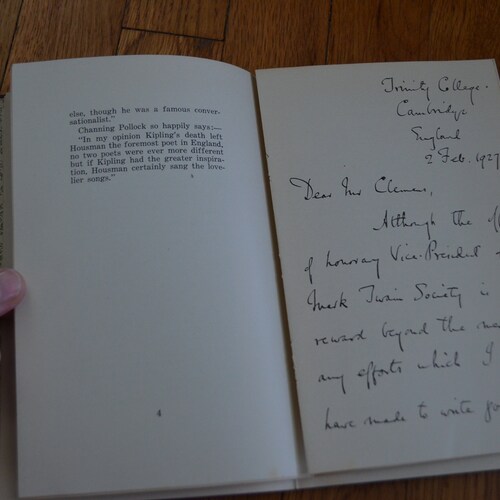 else, though he was a famous conver-
sationalist."
Channing Pollock so happily says:—
"In my opinion Kipling's death left
Housman the foremost poet in England,
no two poets were ever more different
but if Kipling had the greater inspira-
tion, Housman certainly sang the love-
lier songs."
4
Trinity College.
Cambridge
England
2 Feb. 1927
Dear Mr Clemens,
Although the
of honorary Vice-President
Mark Twain Society is
reward beyond the
any efforts which I
have made to write